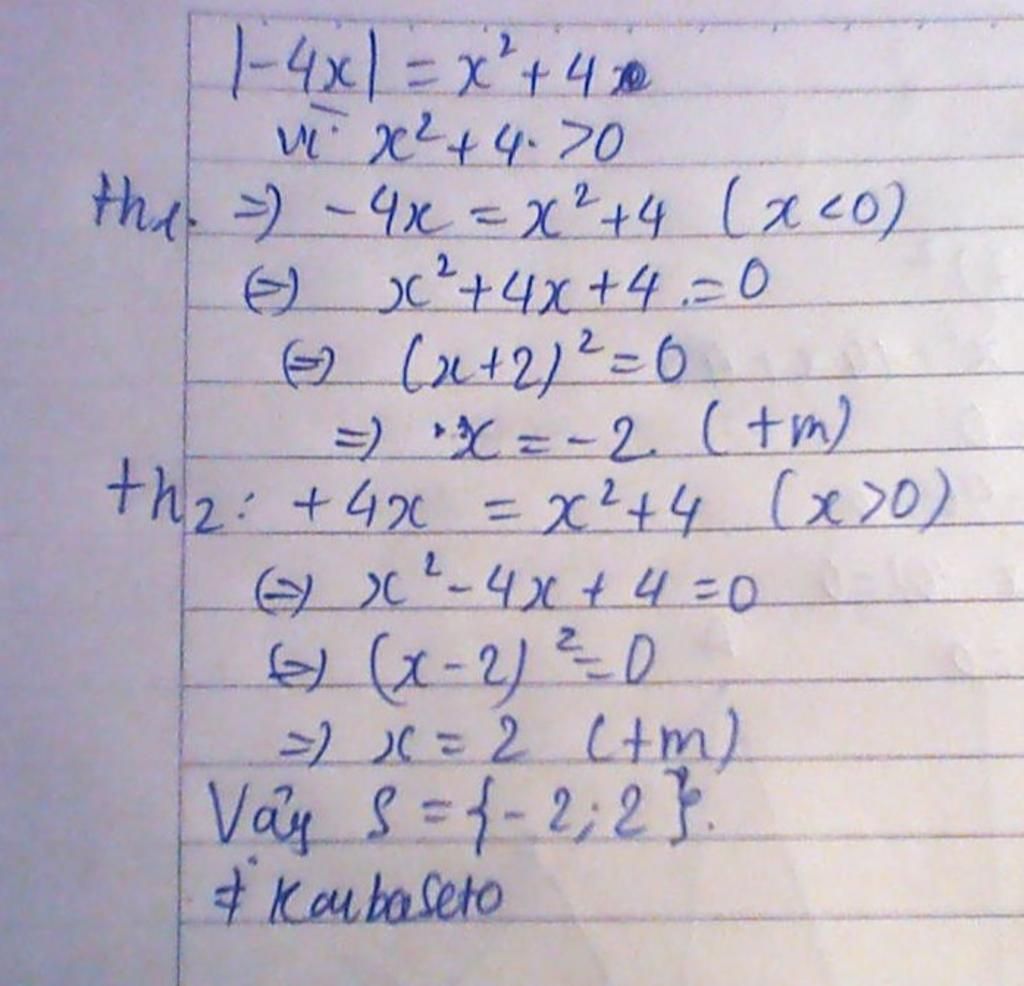 |-4x| = x² + 4
vì x² + 4 > 0
th1. => -4x = x² + 4 (x < 0)
(=) x² + 4x + 4 = 0
(=) (x+2)² = 0
=> x = -2 (+m)
th2: +4x = x² + 4 (x > 0)
(=) x² - 4x + 4 = 0
(=) (x-2)² = 0
=> x = 2 (+m)
Vậy S = {-2; 2}.
# Koubaseto